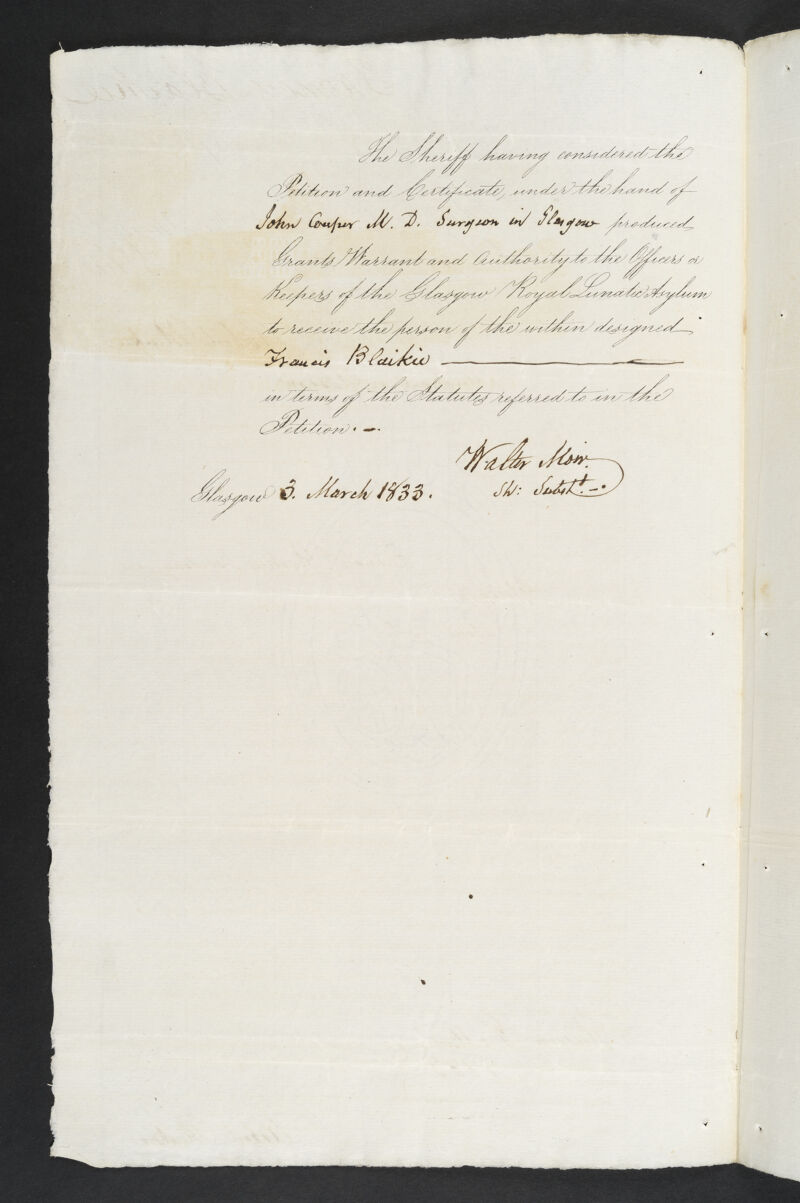 The Sheriff having considered the
Petition and Certificate, under the hand of
John Couper M. D. Surgeon in Glasgow produced
Grants Warrant and Authority to the Officers or
Keepers of the Glasgow Royal Lunatic Asylum
to receive the person of the within designed
Francis Blaikie
in terms of the Statutes referred to in the
Petition. –
Walter Moir.
Sh: Subst.
Glasgow 3. March 1833.